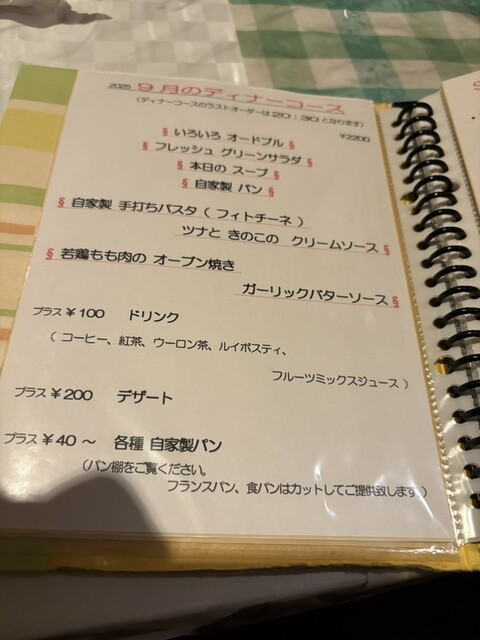 2025 9月のディナーコース
(ディナーコースのラストオーダーは20:30となります)
¥2200
§ いろいろ オードブル §
§ フレッシュ グリーンサラダ §
§ 本日の スープ §
§ 自家製 パン §
§ 自家製 手打ちパスタ ( フィトチーネ )
ツナと きのこの クリームソース §
§ 若鶏もも肉の オーブン焼き
ガーリックバターソース §
プラス ¥100 ドリンク
( コーヒー、紅茶、ウーロン茶、ルイボスティ、
フルーツミックスジュース )
プラス ¥200 デザート
プラス ¥40 ～ 各種 自家製パン
(パン棚をご覧ください。
フランスパン、食パンはカットしてご提供致します )